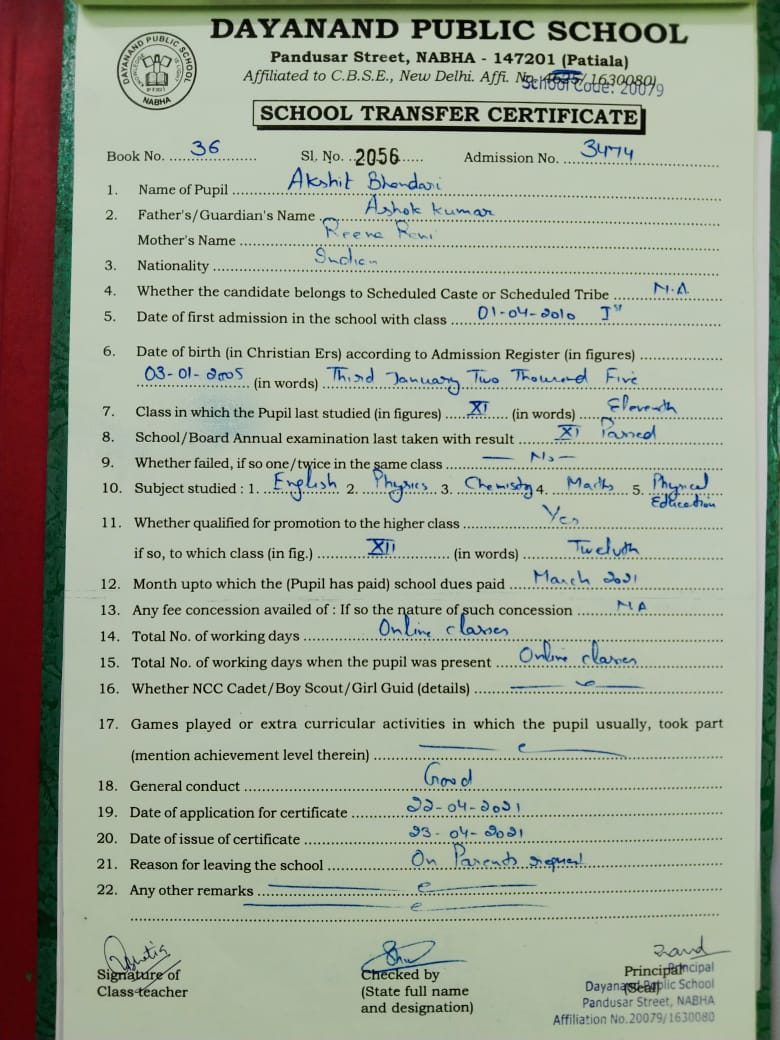 DAYANAND PUBLIC SCHOOL
DAYANAND PUBLIC SCHOOL
NABHA
Pandusar Street, NABHA - 147201 (Patiala)
Affiliated to C.B.S.E., New Delhi. Affi. No. /1630080)
School Code: 20079
SCHOOL TRANSFER CERTIFICATE
Book No. 36 Sl. No. 2056 Admission No. 3474
1. Name of Pupil Akshit Bhandari
2. Father's/Guardian's Name Ashok Kumar
Mother's Name Reena Rani
3. Nationality Indian
4. Whether the candidate belongs to Scheduled Caste or Scheduled Tribe N.A
5. Date of first admission in the school with class 01-04-2010 Ist
6. Date of birth (in Christian Ers) according to Admission Register (in figures)
03-01-2005 (in words) Third January Two Thousand Five
7. Class in which the Pupil last studied (in figures) XI (in words) Eleventh
8. School/Board Annual examination last taken with result XI Passed
9. Whether failed, if so one/twice in the same class — No —
10. Subject studied : 1. English 2. Physics 3. Chemistry 4. Maths 5. Physical Education
11. Whether qualified for promotion to the higher class Yes
if so, to which class (in fig.) XII (in words) Twelvth
12. Month upto which the (Pupil has paid) school dues paid March 2021
13. Any fee concession availed of : If so the nature of such concession NA
14. Total No. of working days Online classes
15. Total No. of working days when the pupil was present Online classes
16. Whether NCC Cadet/Boy Scout/Girl Guid (details)
17. Games played or extra curricular activities in which the pupil usually, took part
(mention achievement level therein)
18. General conduct Good
19. Date of application for certificate 22-04-2021
20. Date of issue of certificate 23-04-2021
21. Reason for leaving the school On Parents request
22. Any other remarks
Signature of Checked by Principal
Class-teacher (State full name (Seal)
and designation)
Principal
Dayanand Public School
Pandusar Street, NABHA
Affiliation No.20079/1630080